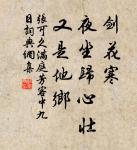 劍花寒
夜坐歸心壯
又是他鄉
張可久滿庭芳客中九
日詞典網集